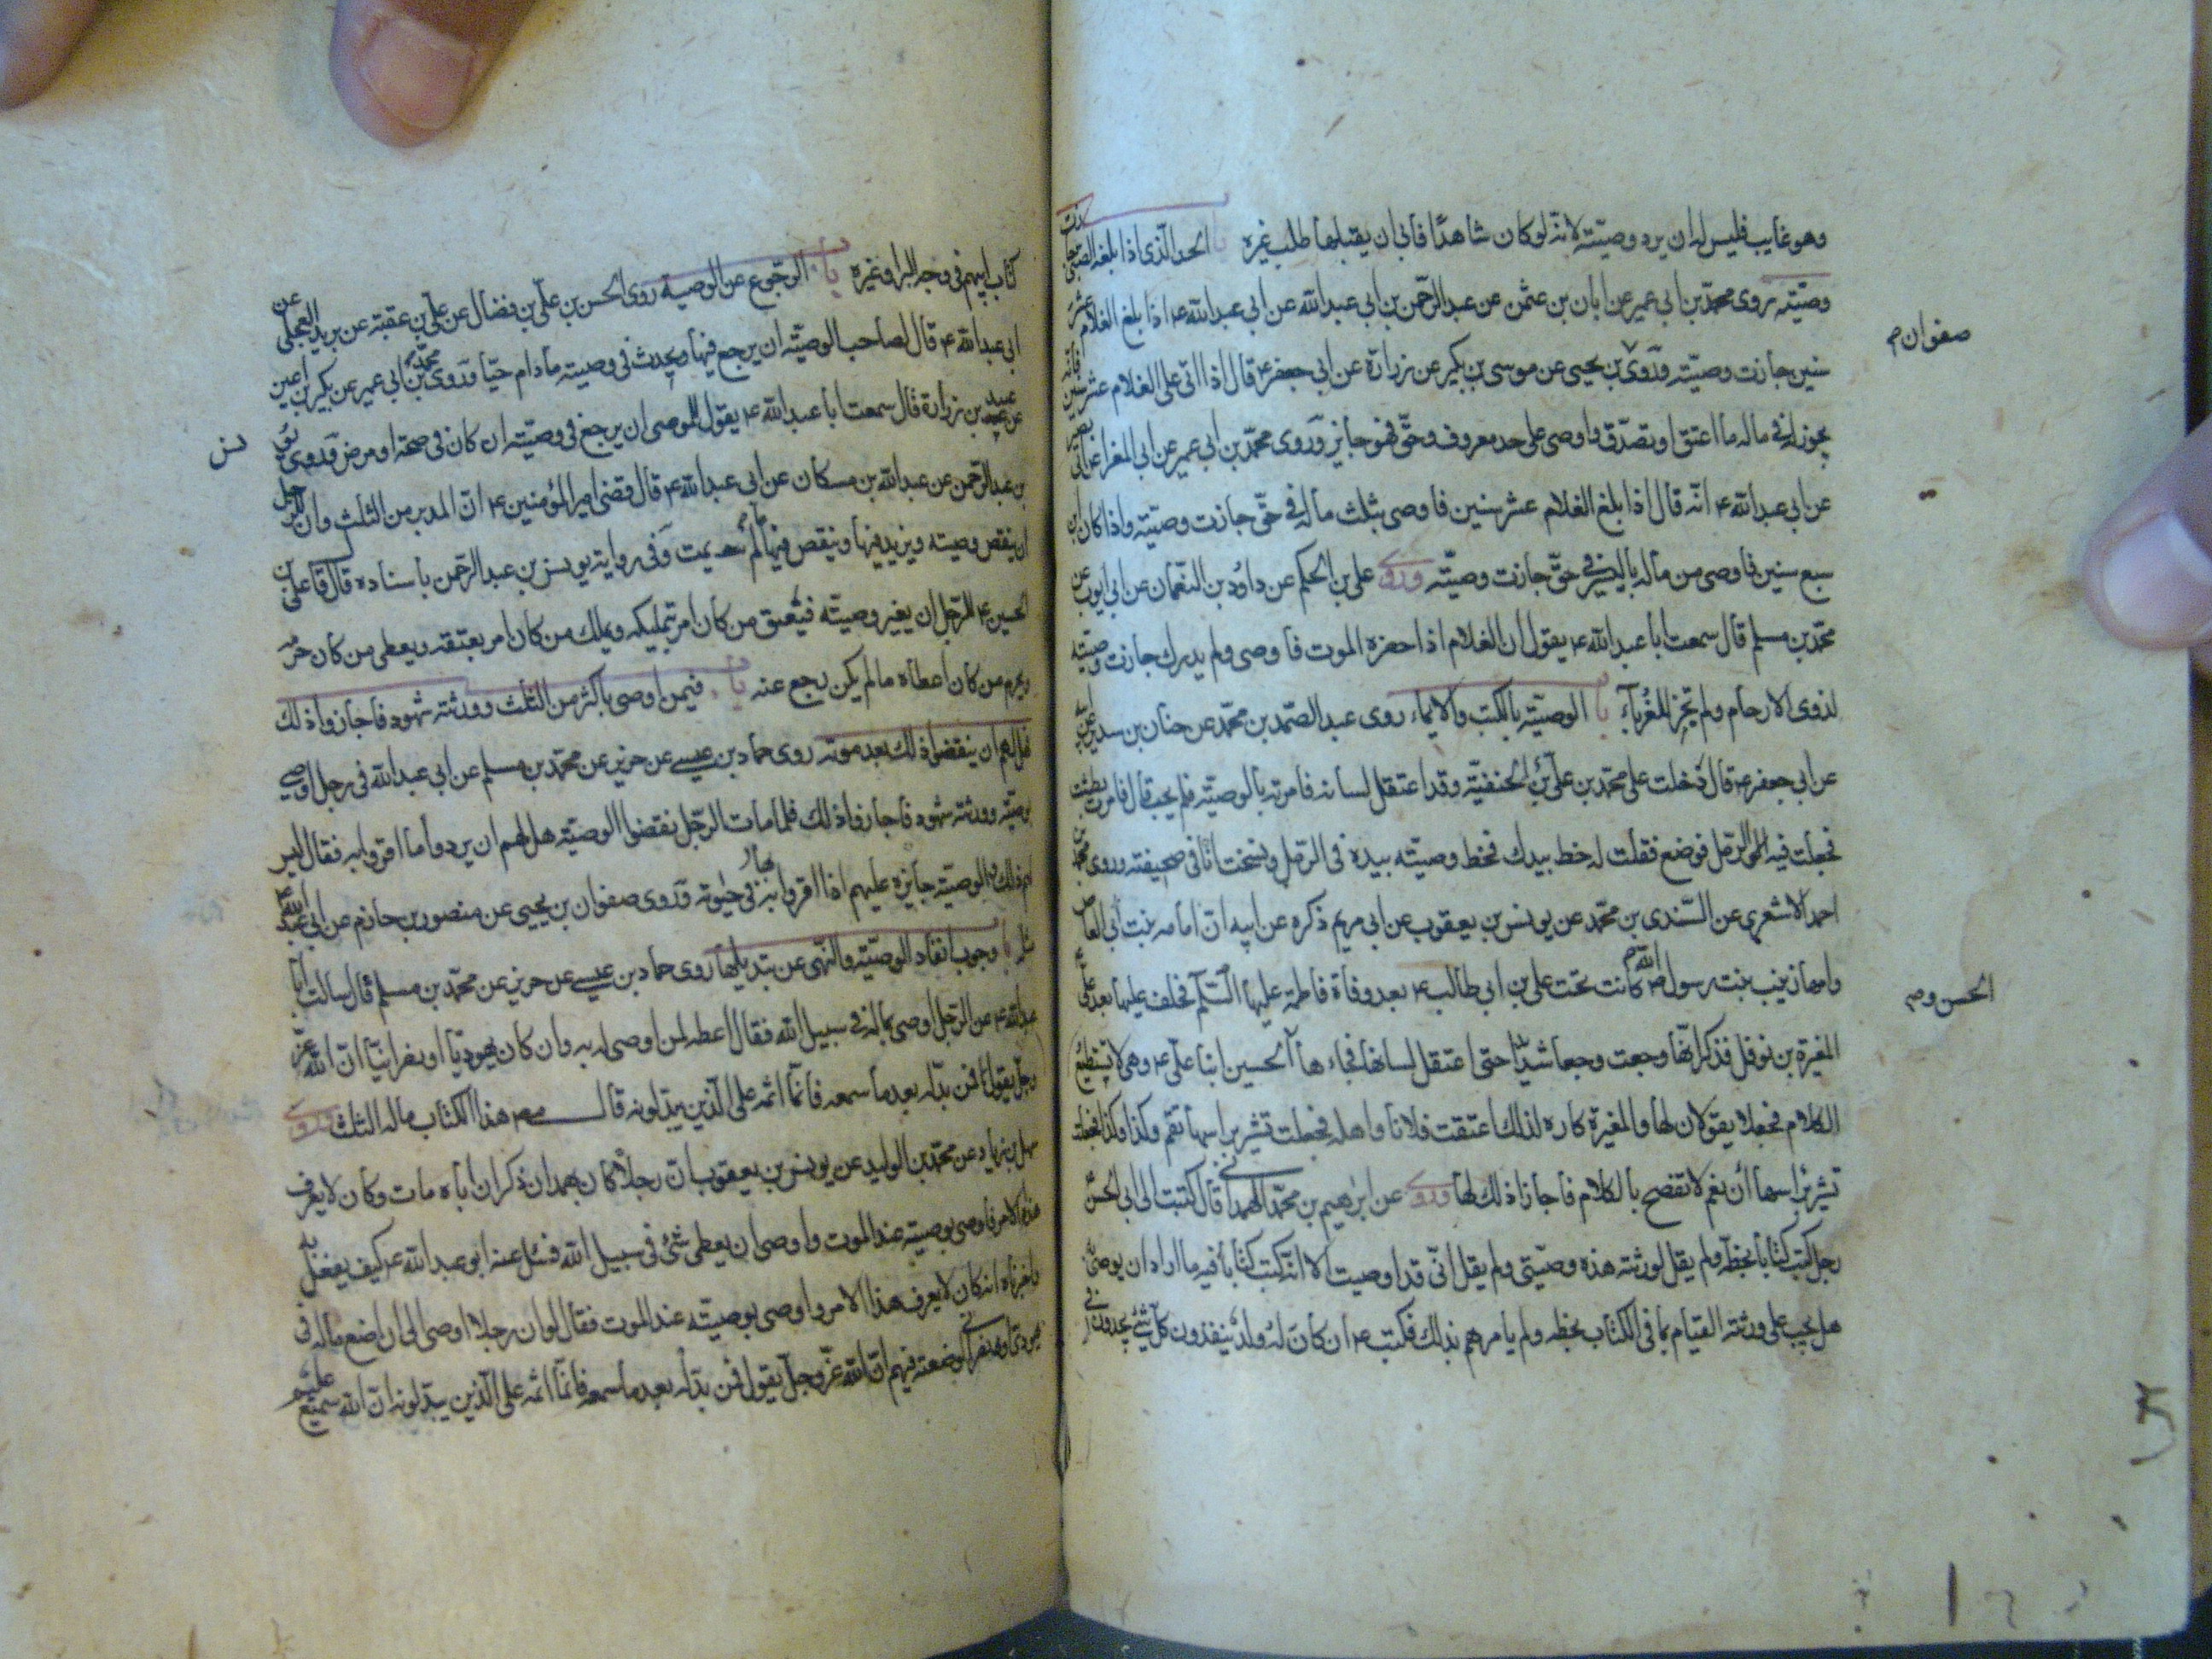 وهو غايب فليس له ان يرد وصيته لانه لو كان شاهدا فابى ان يقبلها طلب غيره باب الحد الذى اذا بلغه الصبى جازت
وصيته روى محمد بن ابى عمير عن ابان بن عثمن عن عبد الرحمن بن ابى عبد الله عن ابى عبد الله ع اذا بلغ الغلام عشر
صفوان م
سنين جازت وصيته وروى بن يحيى عن موسى بن بكير عن زرارة عن ابى جعفر ع قال اذا اتى على الغلام عشر سنين فانه
يجوز له فى ماله ما اعتق او تصدق واوصى على حد معروف وحق فهو جايز وروى محمد بن ابى عمير عن ابى المغرا عن ابى بصير
عن ابى عبد الله ع انه قال اذا بلغ الغلام عشر سنين فاوصى بثلث ماله فى حق جازت وصيته واذا كان ابن
سبع سنين فاوصى من ماله باليسير فى حق جازت وصيته وروى على بن الحكم عن داود بن النعمان عن ابى ايوب عن
محمد بن مسلم قال سمعت ابا عبد الله ع يقول ان الغلام اذا حضره الموت فاوصى ولم يدرك جازت وصيته
لذوى الارحام ولم تجز للغرباء باب الوصية بالكتب والايماء روى عبد الصمد بن محمد عن حنان بن سدير عن ابيه
عن ابى جعفر ع قال دخلت على محمد بن على بن الحنفية وقد اعتقل لسانه فامرته بالوصية فلم يجب قال فامرت بطشت
فجعلت فيه الرمل فوضع فقلت له خط بيدك فخط وصيته بيده فى الرمل ونسخت انا فى صحيفته وروى محمد بن
احمد الاشعرى عن السندى بن محمد عن يونس بن يعقوب عن ابى مريم ذكره عن ابيه ان امامه بنت ابى العاص
وامها زينب بنت رسول الله ص كانت تحت على بن ابى طالب ع بعد وفاة فاطمة عليها السلم فخلف عليها بعد على ع
الحسن و م
المغيرة بن نوفل فذكر انها وجعت وجعا شديدا حتى اعتقل لسانها فجاءها الحسين ابنا على ع وهى لا تستطيع
الكلام فجعلا يقولان لها والمغيرة كاره لذلك اعتقت فلانا واهله فجعلت تشير براسها نعم وكذا وكذا فجعلت
تشير براسها ان نعم لا تفصح بالكلام فاجازا ذلك لها وروى عن ابرهيم بن محمد الهمدانى قال كتبت الى ابى الحسن
رجل كتب كتابا بخطه ولم يقل لورثته هذه وصيتى ولم يقل انى قد اوصيت الا انه كتب كتابا فيه ما اراد ان يوصى به
هل يجب على ورثته القيام بما فى الكتاب بخطه ولم يامرهم بذلك فكتب ع ان كان له ولد ينفذون كل شئ يجدون فى
كتاب ابيهم فى وجه البر او غيره باب الرجوع عن الوصية روى الحسن بن على بن فضال عن على بن عقبة عن بريد العجلى عن
ابى عبد الله ع قال لصاحب الوصية ان يرجع فيها ويحدث فى وصيته ما دام حيا وروى محمد بن ابى عمير عن بكير بن اعين
عن عبيد بن زرارة قال سمعت ابا عبد الله ع يقول للموصى ان يرجع فى وصيته ان كان فى صحة او مرض وروى يونس
بن عبد الرحمن عن عبد الله بن مسكان عن ابى عبد الله ع قال قضى امير المؤمنين ع ان المدبر من الثلث وان للرجل
ان ينقص وصيته ويزيد فيها وينقص فيها ما لم يمت وفى رواية يونس بن عبد الرحمن باسناده قال قال على بن
الحسين ع للرجل ان يغير وصيته فيعتق من كان امر بتمليكه ويملك من كان امر بعتقه ويعطى من كان حرمه
ويحرم من كان اعطاه ما لم يكن رجع عنه باب فيمن اوصى باكثر من الثلث وورثته شهود فاجازوا ذلك
هل لهم ان ينقضوا ذلك بعد موته روى حماد بن عيسى عن حريز عن محمد بن مسلم عن ابى عبد الله فى رجل اوصى
بوصية وورثته شهود فاجازوا ذلك فلما مات الرجل نقضوا الوصية هل لهم ان يردوا ما اقروا به فقال ليس
لهم ذلك الوصية جايزه عليهم اذا اقروا بها فى حيوته وروى صفوان بن يحيى عن منصور بن حازم عن ابى عبد الله ع
مثله باب وجوب انفاد الوصية والنهى عن تبديلها روى حماد بن عيسى عن حريز عن محمد بن مسلم قال سالت ابا
عبد الله ع عن الرجل اوصى بماله فى سبيل الله فقال اعطه لمن اوصى له به وان كان يهوديا او نصرانيا ان الله عز
وجل يقول فمن بدله بعد ما سمعه فانما اثمه على الذين يبدلونه قال مص هذا الكتاب ماله الثلث وروى
سهل بن زياد عن محمد بن الوليد عن يونس بن يعقوب ان رجلا كان بهمدان ذكر ان اباه مات وكان لا يعرف
هذا الامر فاوصى بوصيته عند الموت واوصى ان يعطى شئ فى سبيل الله فسئل عنه ابو عبد الله ع كيف يفعل به
واخبرناه انه كان لا يعرف هذا الامر واوصى بوصيته عند الموت فقال لو ان رجلا اوصى الى ان اضع ماله فى
يهودى او نصرانى لوضعته فيهم ان الله عز وجل يقول فمن بدله بعد ما سمعه فانما اثمه على الذين يبدلونه ان الله سميع عليم